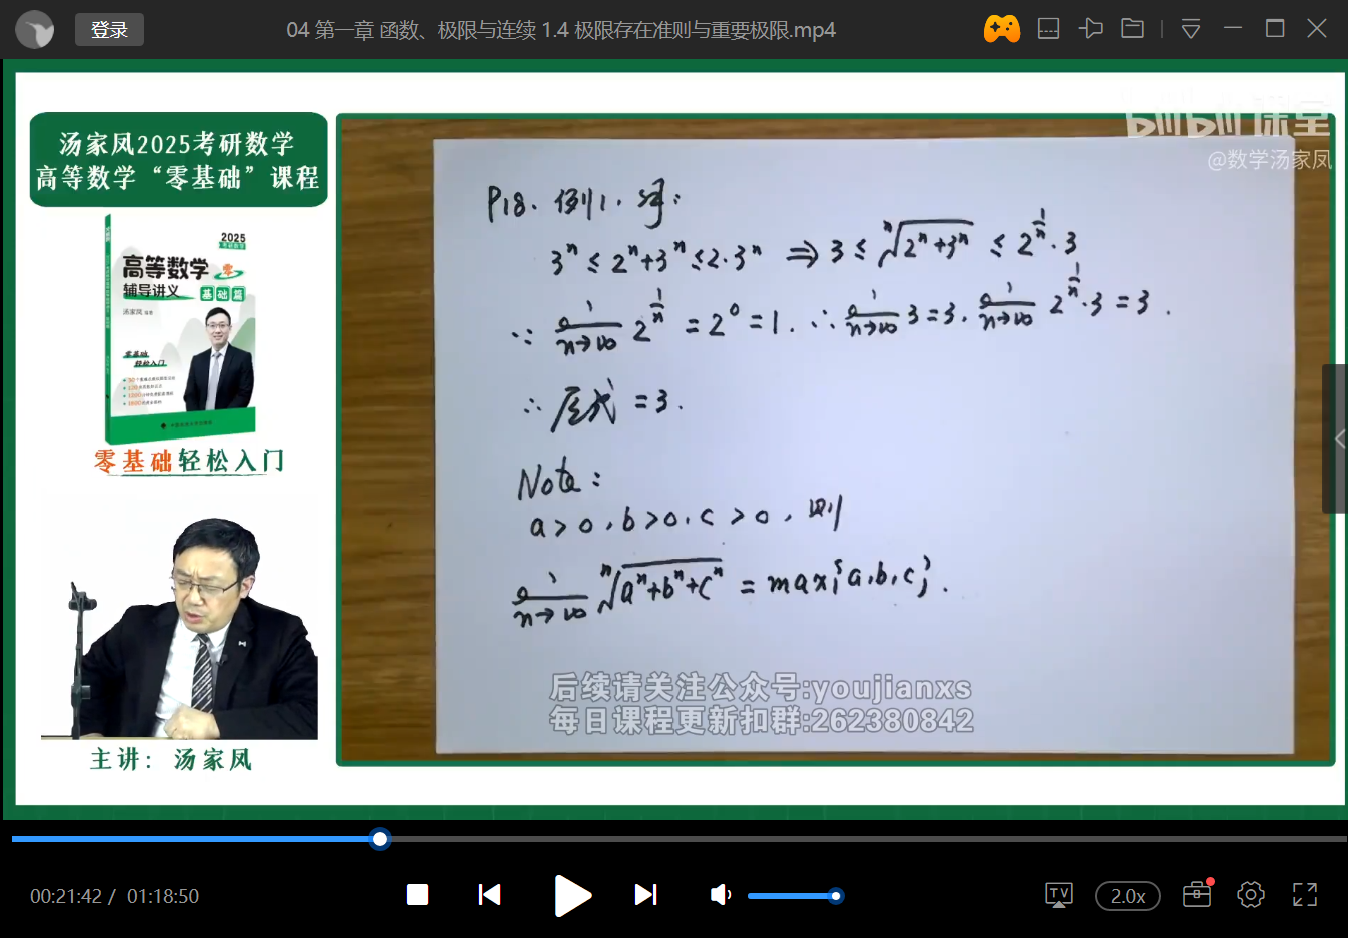 登录
04 第一章 函数、极限与连续 1.4 极限存在准则与重要极限.mp4
汤家凤2025考研数学
高等数学“零基础”课程
2025
高等数学 零
辅导讲义 基础篇
汤家凤
零基础
轻松入门
零基础轻松入门
主讲： 汤家凤
bilibili课堂
@数学汤家凤
P18. 例1. 解:
3ⁿ ≤ 2ⁿ+3ⁿ ≤ 2·3ⁿ ⇒ 3 ≤ ⁿ√(2ⁿ+3ⁿ) ≤ 2^(1/n)·3
∵ lim n→∞ 2^(1/n) = 2⁰ = 1. ∴ lim n→∞ 3 = 3, lim n→∞ 2^(1/n)·3 = 3.
∴ 原式 = 3.
Note:
a>0, b>0, c>0, 则
lim n→∞ ⁿ√(aⁿ+bⁿ+cⁿ) = max{a,b,c}.
后续请关注公众号:youjianxs
每日课程更新扣群:262380842
00:21:42 / 01:18:50
TV
2.0x